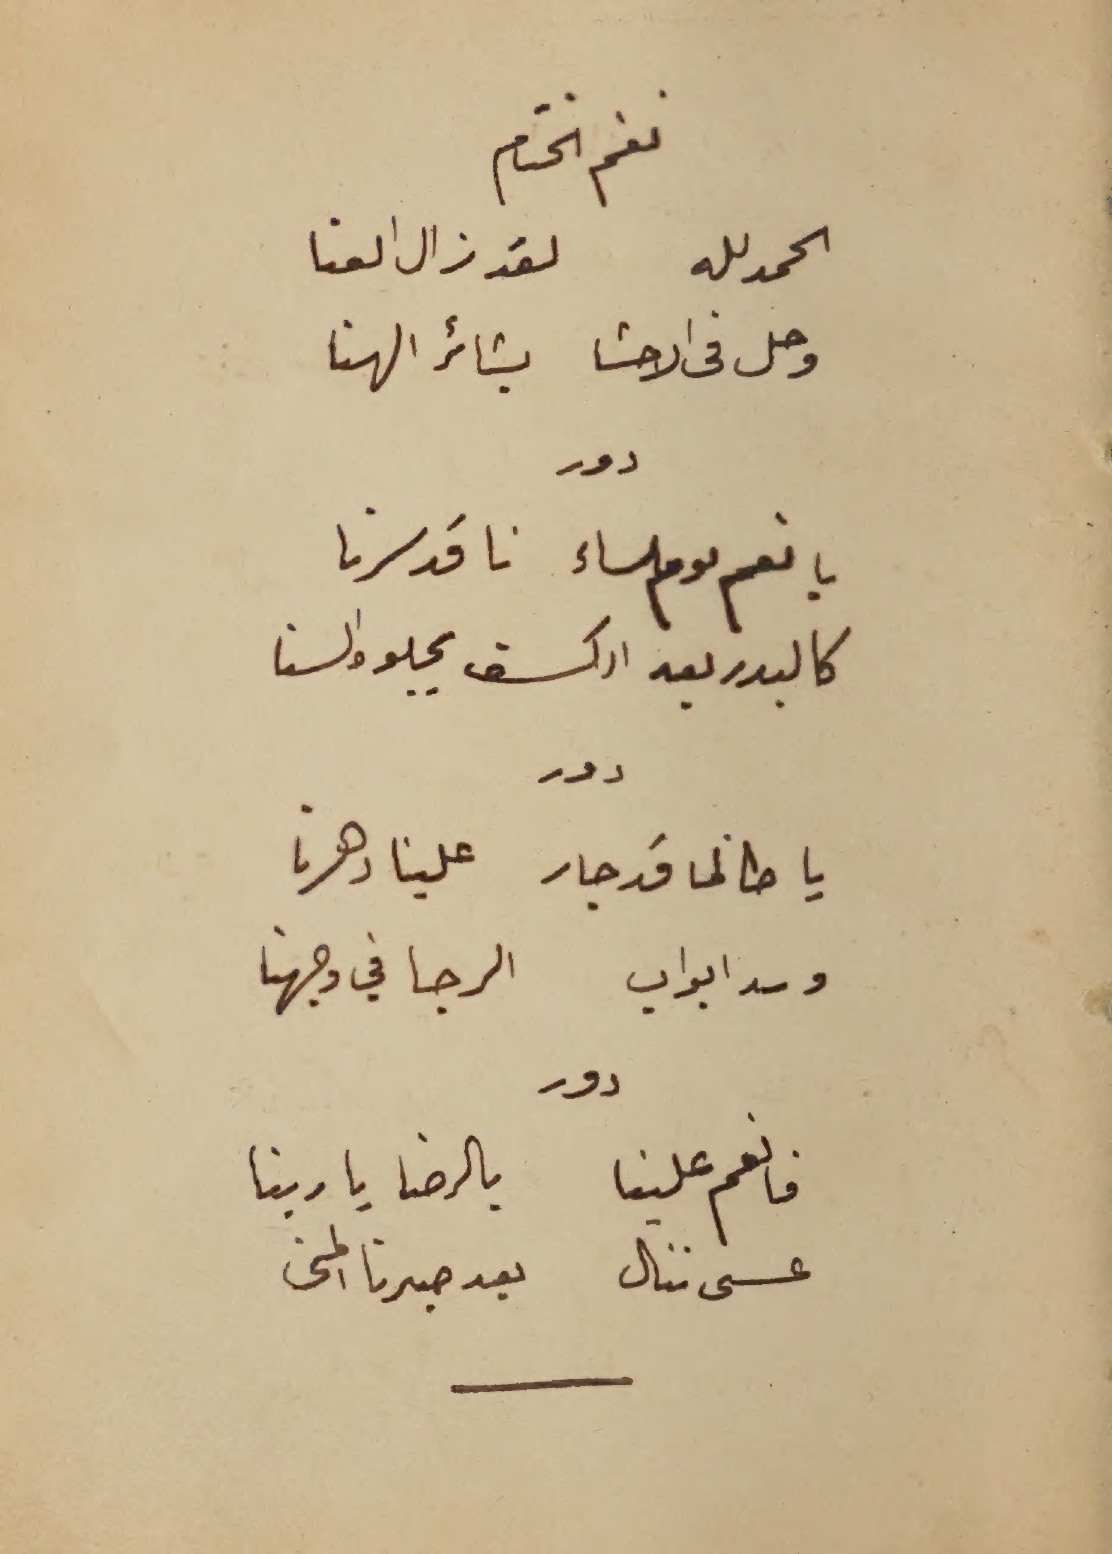 نغم الختام
الحمد لله لقد زال العنا
وحل فى الاحشا بشائر الهنا
دور
يا نعم يوم لساء نا قد سرنا
كالبدر بعد كسف يجلو السنا
دور
يا طالما قد جار علينا دهرنا
وسد ابواب الرجا في وجهنا
دور
فانعم علينا بالرضا يا ربنا
عسى ننال بعد صبرنا المنى